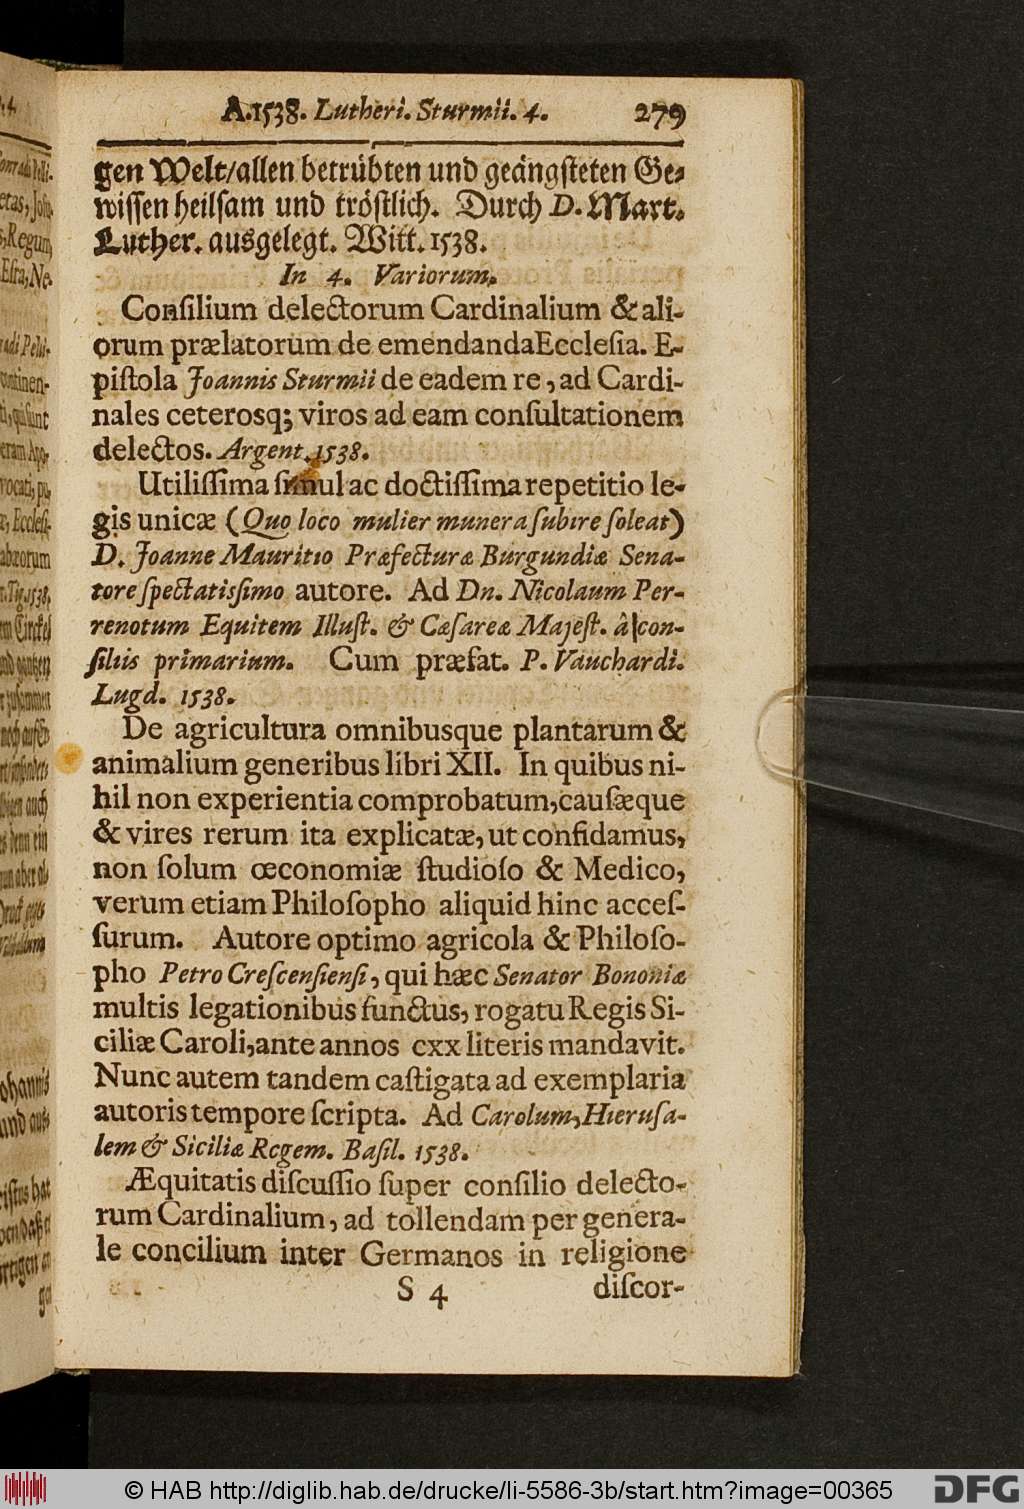 A. 1538. Lutheri. Sturmii. 4. 279
gen Welt/allen betrübten und geängsteten Ge-
wissen heilsam und tröstlich. Durch D. Mart.
Luther. ausgelegt. Witt. 1538.
In 4. Variorum.
Conſilium delectorum Cardinalium & ali-
orum prælatorum de emendanda Eccleſia. E-
piſtola Joannis Sturmii de eadem re, ad Cardi-
nales ceterosq; viros ad eam conſultationem
delectos. Argent. 1538.
Utiliſſima ſimul ac doctiſſima repetitio le-
gis unicæ (Quo loco mulier munera ſubire ſoleat)
D. Joanne Mauritio Præfecturæ Burgundiæ Sena-
tore ſpectatisſimo autore. Ad Dn. Nicolaum Per-
renotum Equitem Illuſt. & Cæſareæ Majeſt. â con-
ſiliis primarium. Cum præfat. P. Vauchardi.
Lugd. 1538.
De agricultura omnibusque plantarum &
animalium generibus libri XII. In quibus ni-
hil non experientia comprobatum, cauſæque
& vires rerum ita explicatæ, ut confidamus,
non ſolum œconomiæ ſtudioſo & Medico,
verum etiam Philoſopho aliquid hinc acceſ-
ſurum. Autore optimo agricola & Philoſo-
pho Petro Creſcenſienſi, qui hæc Senator Bononiæ
multis legationibus functus, rogatu Regis Si-
ciliæ Caroli, ante annos cxx literis mandavit.
Nunc autem tandem caſtigata ad exemplaria
autoris tempore ſcripta. Ad Carolum, Hieruſa-
lem & Siciliæ Regem. Baſil. 1538.
Æquitatis diſcuſſio ſuper conſilio delecto-
rum Cardinalium, ad tollendam per genera-
le concilium inter Germanos in religione
S 4 diſcor-
© HAB http://diglib.hab.de/drucke/li-5586-3b/start.htm?image=00365
DFG